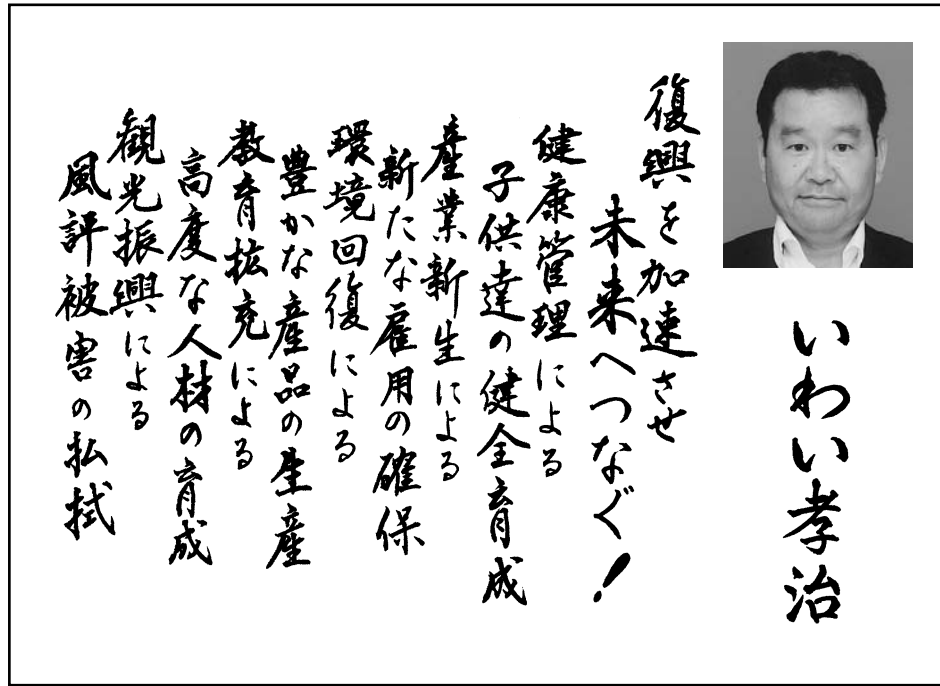 いわい孝治
復興を加速させ
未来へつなぐ!
健康管理による
子供達の健全育成
産業新生による
新たな雇用の確保
環境回復による
豊かな産品の生産
教育拡充による
高度な人材の育成
観光振興による
風評被害の払拭